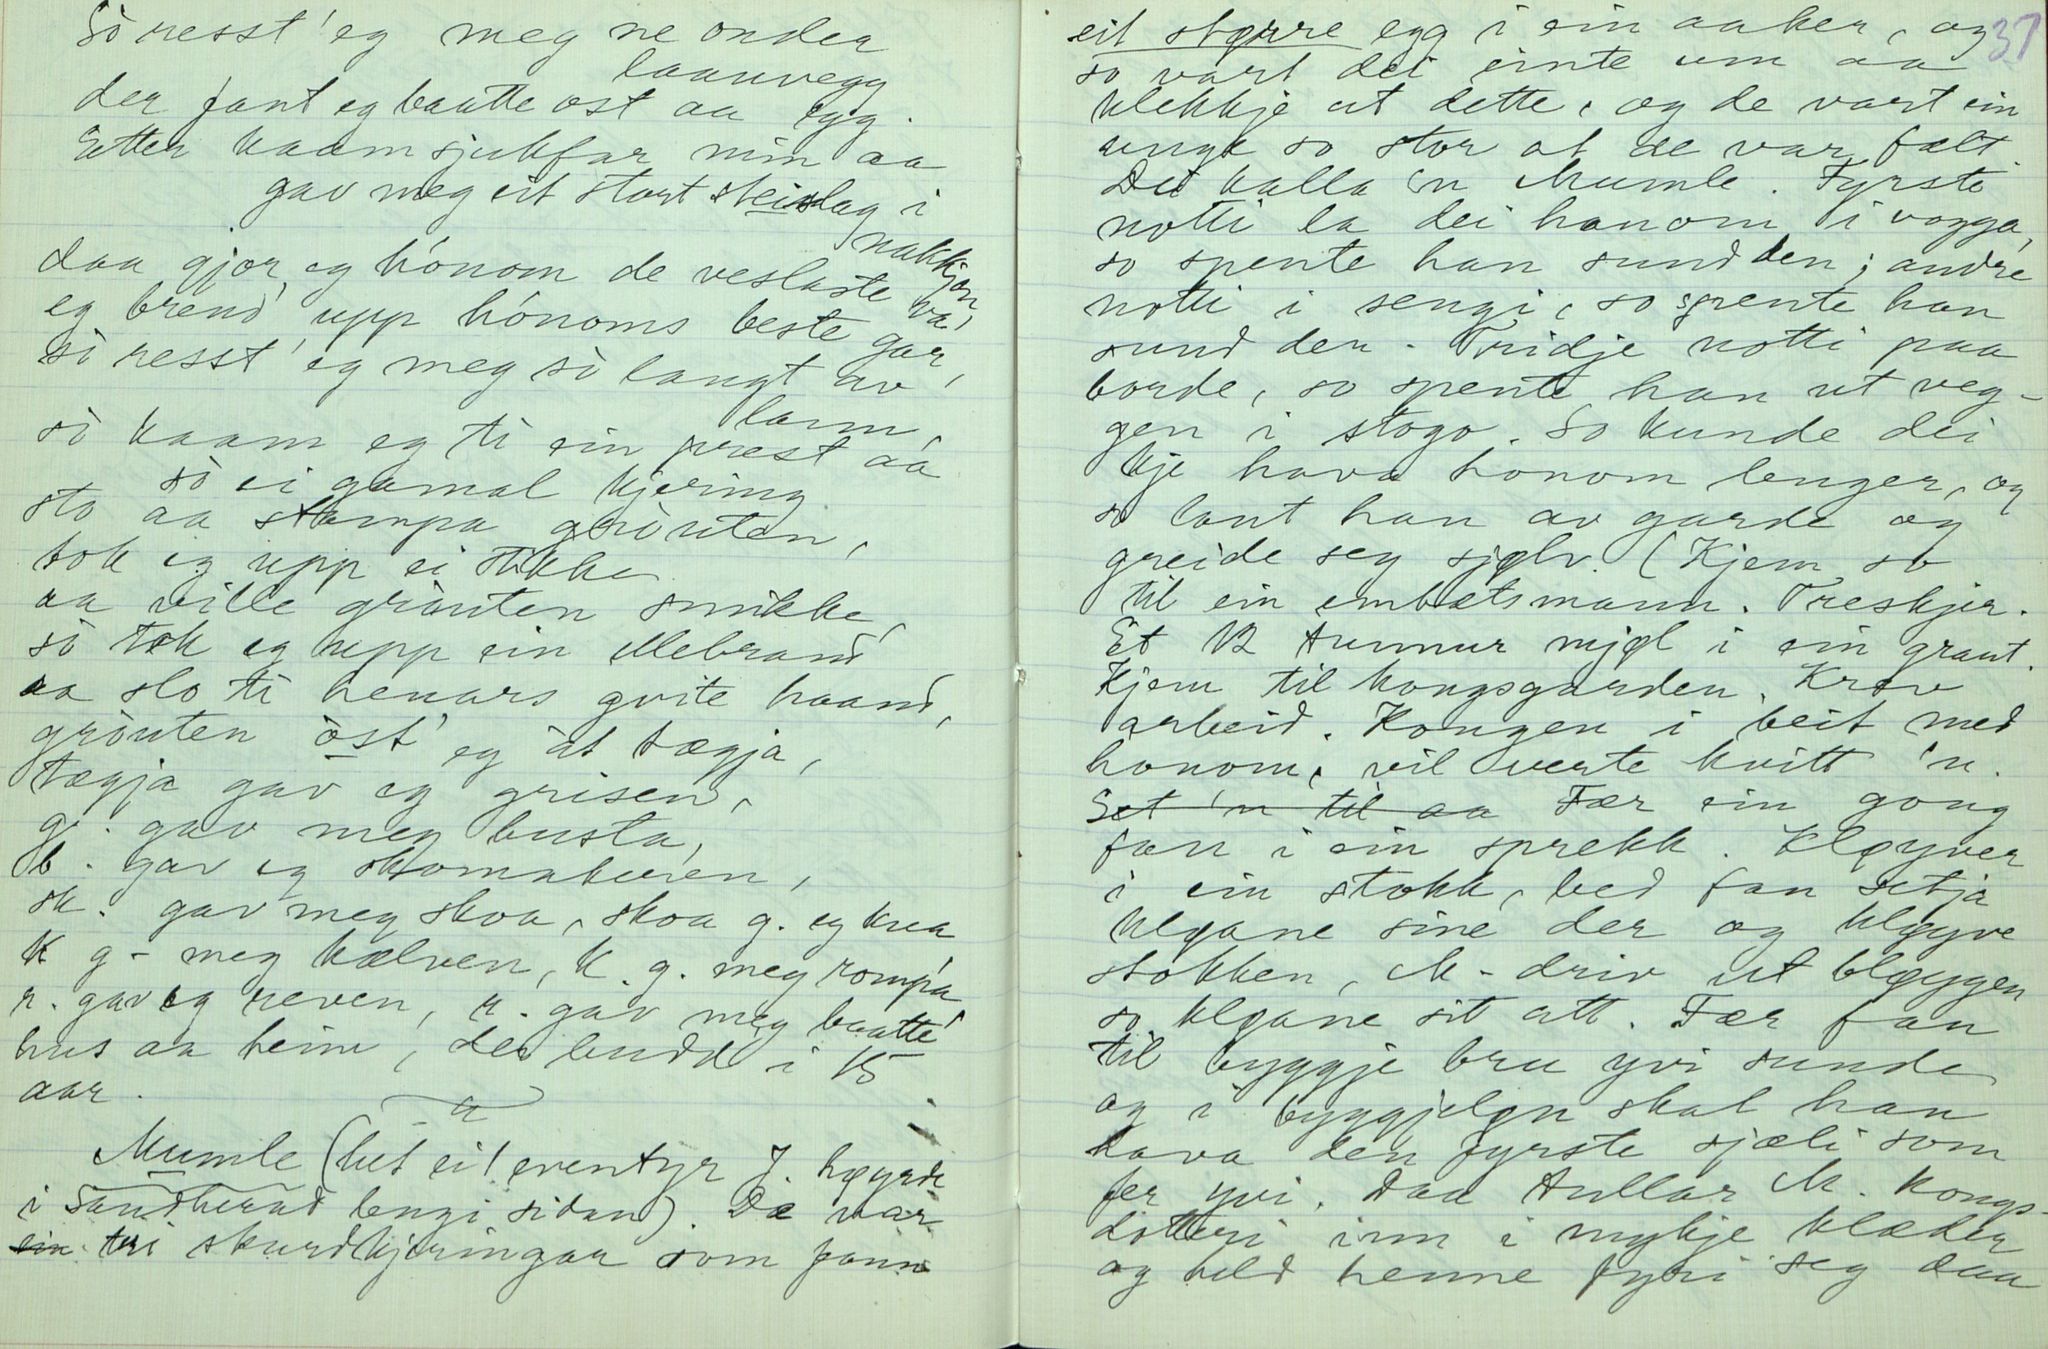 Sò resst' eg meg ne onder
laanvegg
der fant eg baatte ost aa egg.
Etter kaam sjukfar min aa
gav meg eit stort steinslag i
nakkjen,
daa gjor eg hònom de veslaste va,
eg brend' upp hònoms beste gar,
sò resst' eg meg sò langt av
lann,
sò kaam eg ti ein prest aa
sò ei gamal kjering
sto aa stampa gròuten,
tok eg upp ei stikke
aa ville gròuten smikke,
sò tok eg upp ein ellebrand
aa slo ti henars gvite haand,
gròuten òst' eg åt tægja,
tægja gav eg grisen,
g. gav meg busta,
b. gav eg skomakuren,
sk. gav meg skoa, skoa g. eg krea
k g - meg kælven, k. g. meg rompa
r. gav eg reven, r. gav meg baatte'
hus aa heim, der budd' i 15
aar.
Mumle (het eit eventyr J. høyrde
i Sandherad lengi sidan). De var
ein tri skurdkjeringar som fann
37
eit større egg i ein aaker, og
so vart dei einte um aa
klekkje ut dette, og de vart ein
unge so stor at de var fælt.
Dei kalla 'n Mumle. Fyrste
notti la dei honom i vogga,
so spente han sund den; andre
notti i sengi, so spente han
sund den. Tridje notti paa
borde, so spente han ut veg-
gen i stogo. So kunde dei
kje hava honom lenger, og
so lout han av garde og
greide seg sjølv. (Kjem so
til ein embætsmann. Treskjer.
Et 12 tunnur mjøl i ein graut.
Kjem til kongsgarden. Krev
arbeid. Kongen i beit med
honom, vil verte kvitt 'n.
Set 'n til aa Fær ein gong
fan i ein sprekk. Kløyver
i ein stokk, bed fan setja
kløane sine der og kløyve
stokken, M- driv ut bløygen
so kløane sit att. Fær fan
til byggje bru yvi sunde
og i byggjeløn skal han
hava den fyrste sjæli som
fer yvi. Daa tullar M. kongs-
dotteri inn i mykje klæder
og held henne fyri seg daa